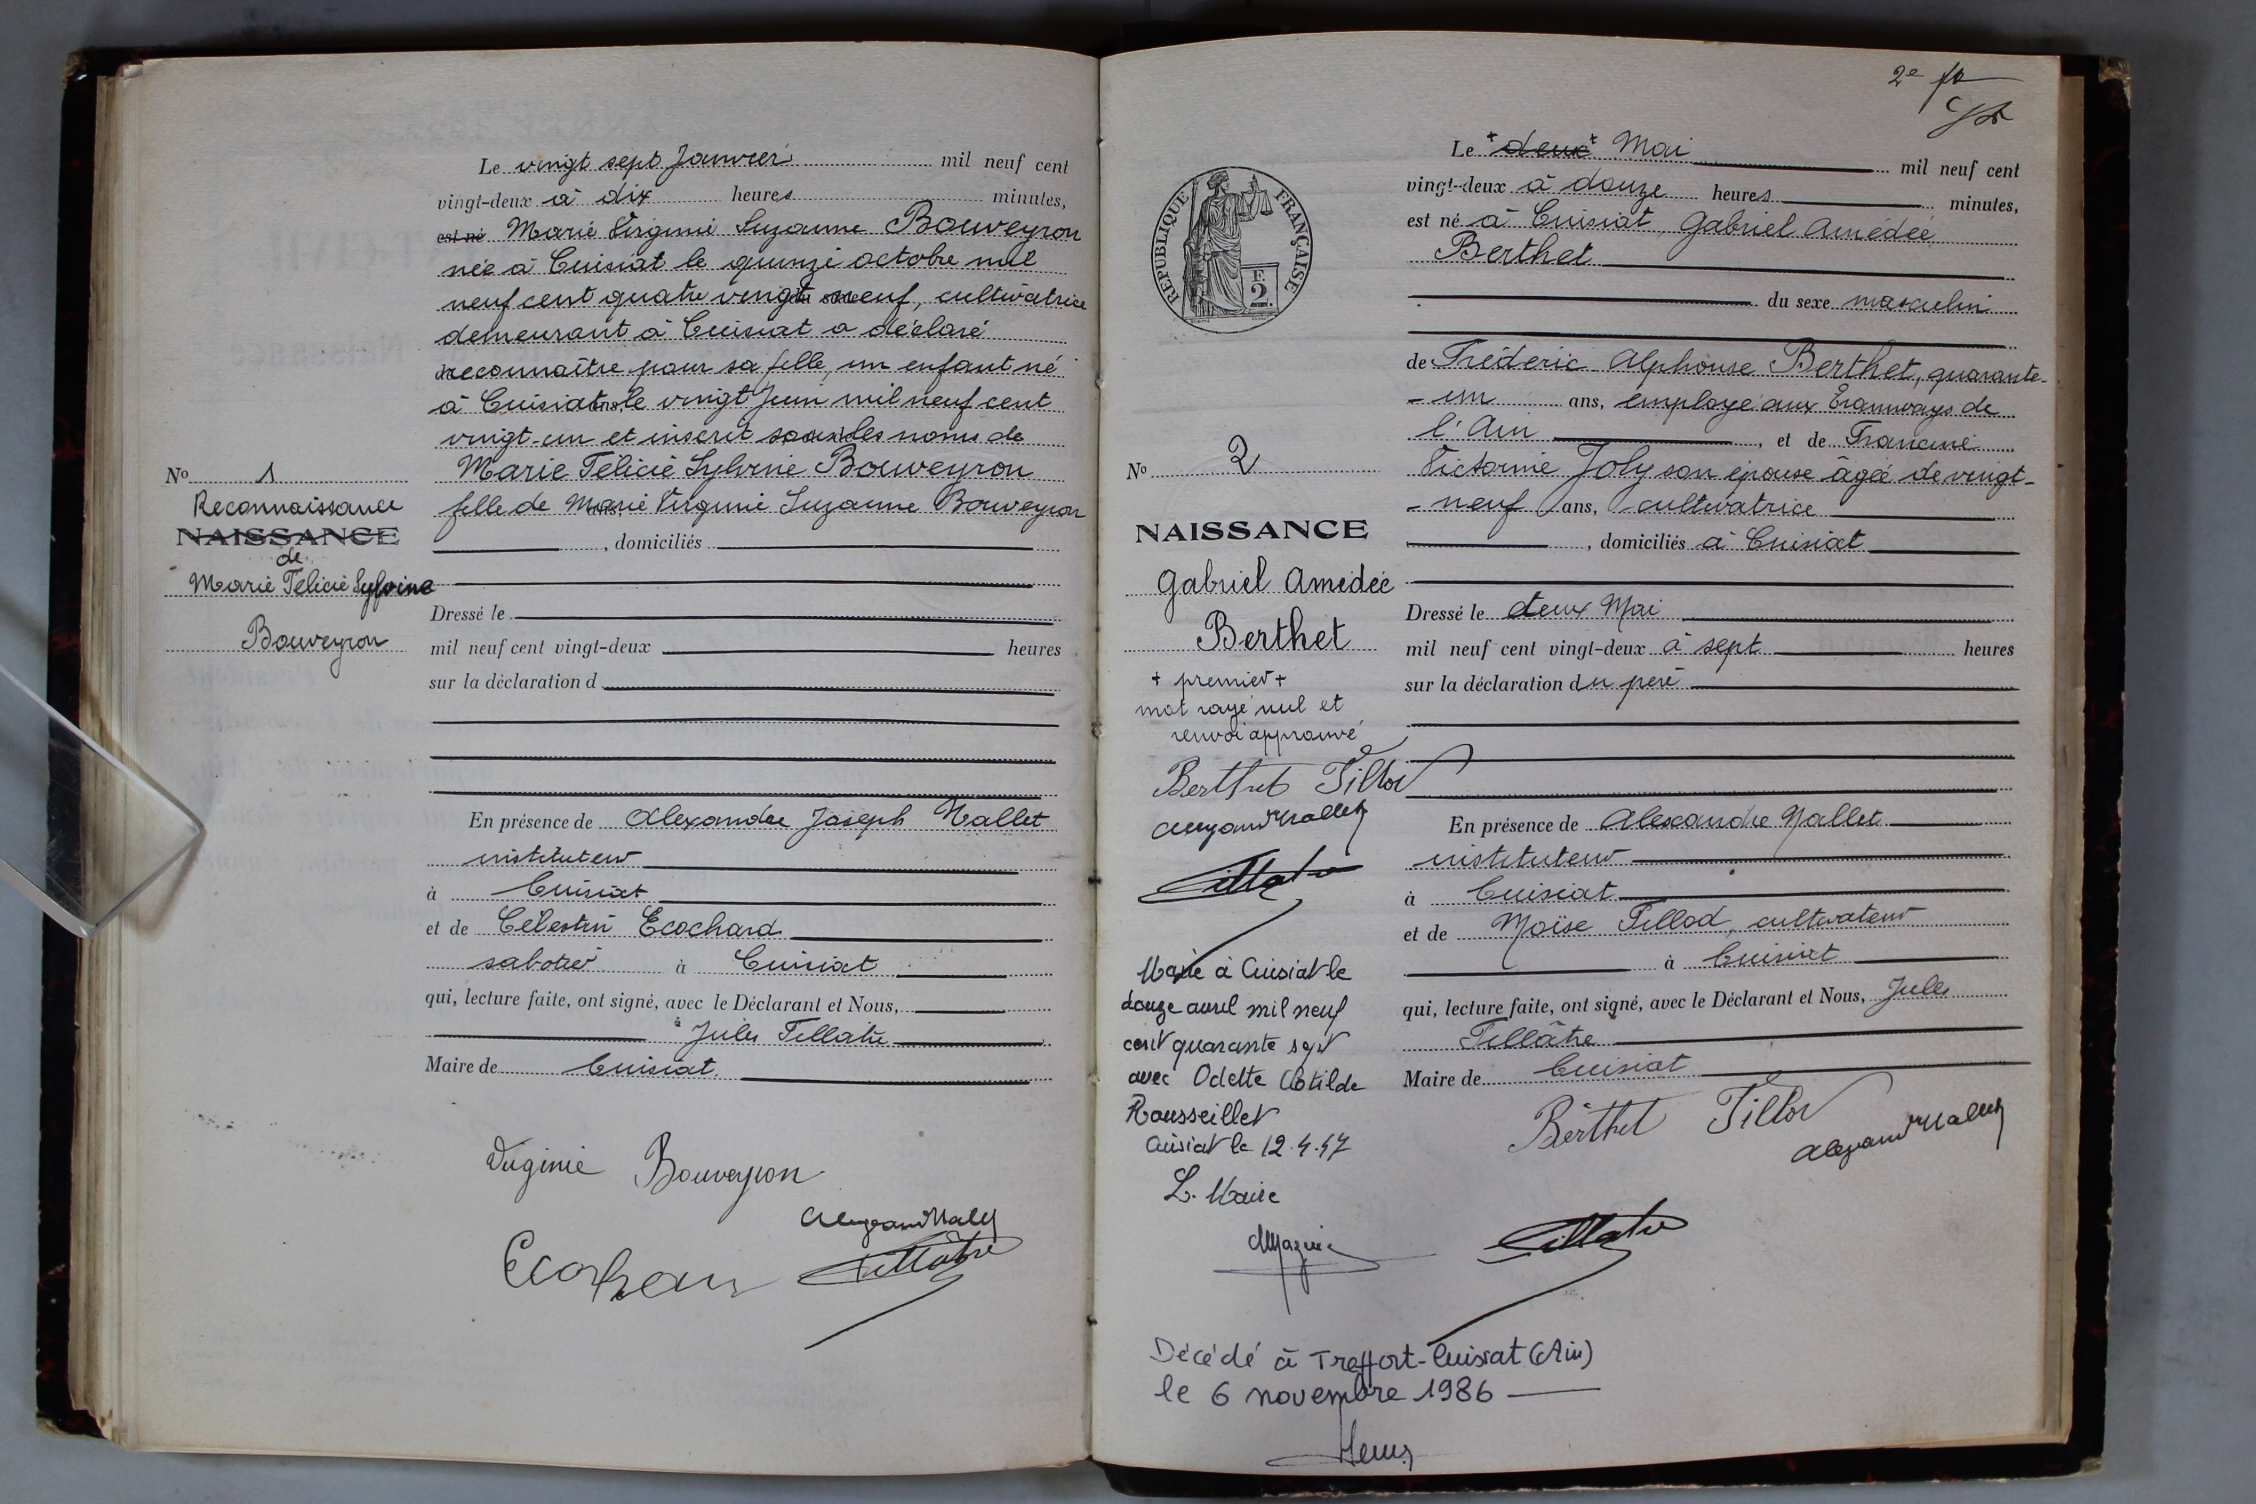 Le vingt sept Janvier mil neuf cent
vingt-deux à dix heures minutes,
est né Marie Virginie Suzanne Bouveyron
née à Cuisiat le quinze octobre mil
neuf cent quatre vingt neuf, cultivatrice
demeurant à Cuisiat a déclaré
reconnaître pour sa fille, un enfant né
à Cuisiat le vingt Juin mil neuf cent
vingt-un et inscrit sous les noms de
Marie Félicie Sylvine Bouveyron
fille de Marie Virginie Suzanne Bouveyron
, domiciliés
Nº 1
Reconnaissance
NAISSANCE
de
Marie Félicie Sylvine
Bouveyron
Dressé le
mil neuf cent vingt-deux heures
sur la déclaration d
En présence de Alexandre Joseph Nallet
instituteur
à Cuisiat
et de Célestin Ecochard
sabotier à Cuisiat
qui, lecture faite, ont signé, avec le Déclarant et Nous,
Jules Tillatre
Maire de Cuisiat.
Virginie Bouveyron
Alexand Nallet
Ecochard
Tillâtre
2e
RÉPUBLIQUE FRANÇAISE
E
2
Le + deux + Mai mil neuf cent
vingt-deux à douze heures minutes,
est né à Cuisiat, Gabriel Amédée
Berthet
du sexe masculin
de Fréderic Alphonse Berthet, quarante-
-un ans, employé aux Tramways de
l'Ain, et de Francine
Victorine Joly son épouse âgée de vingt-
-neuf ans, cultivatrice
, domiciliés à Cuisiat
Dressé le deux Mai
mil neuf cent vingt-deux à sept heures
sur la déclaration du père
En présence de Alexandre Nallet
instituteur
à Cuisiat
et de Moïse Tillod, cultivateur
à Cuisiat
qui, lecture faite, ont signé, avec le Déclarant et Nous, Jules
Tillâtre
Maire de Cuisiat
Berthet Tillod
Alexand Nallet
Tillatre
Nº 2
NAISSANCE
Gabriel Amédée
Berthet
+ premier +
mot rayé nul et
renvoi approuvé
Berthet Tillod
Alexand Nallet
Tillatre
Marié à Cuisiat le
douze avril mil neuf
cent quarante sept
avec Odette Clotilde
Rousseillet
Cuisiat le 12.4.47
L. Maire
Décédé à Treffort-Cuisiat (Ain)
le 6 novembre 1986